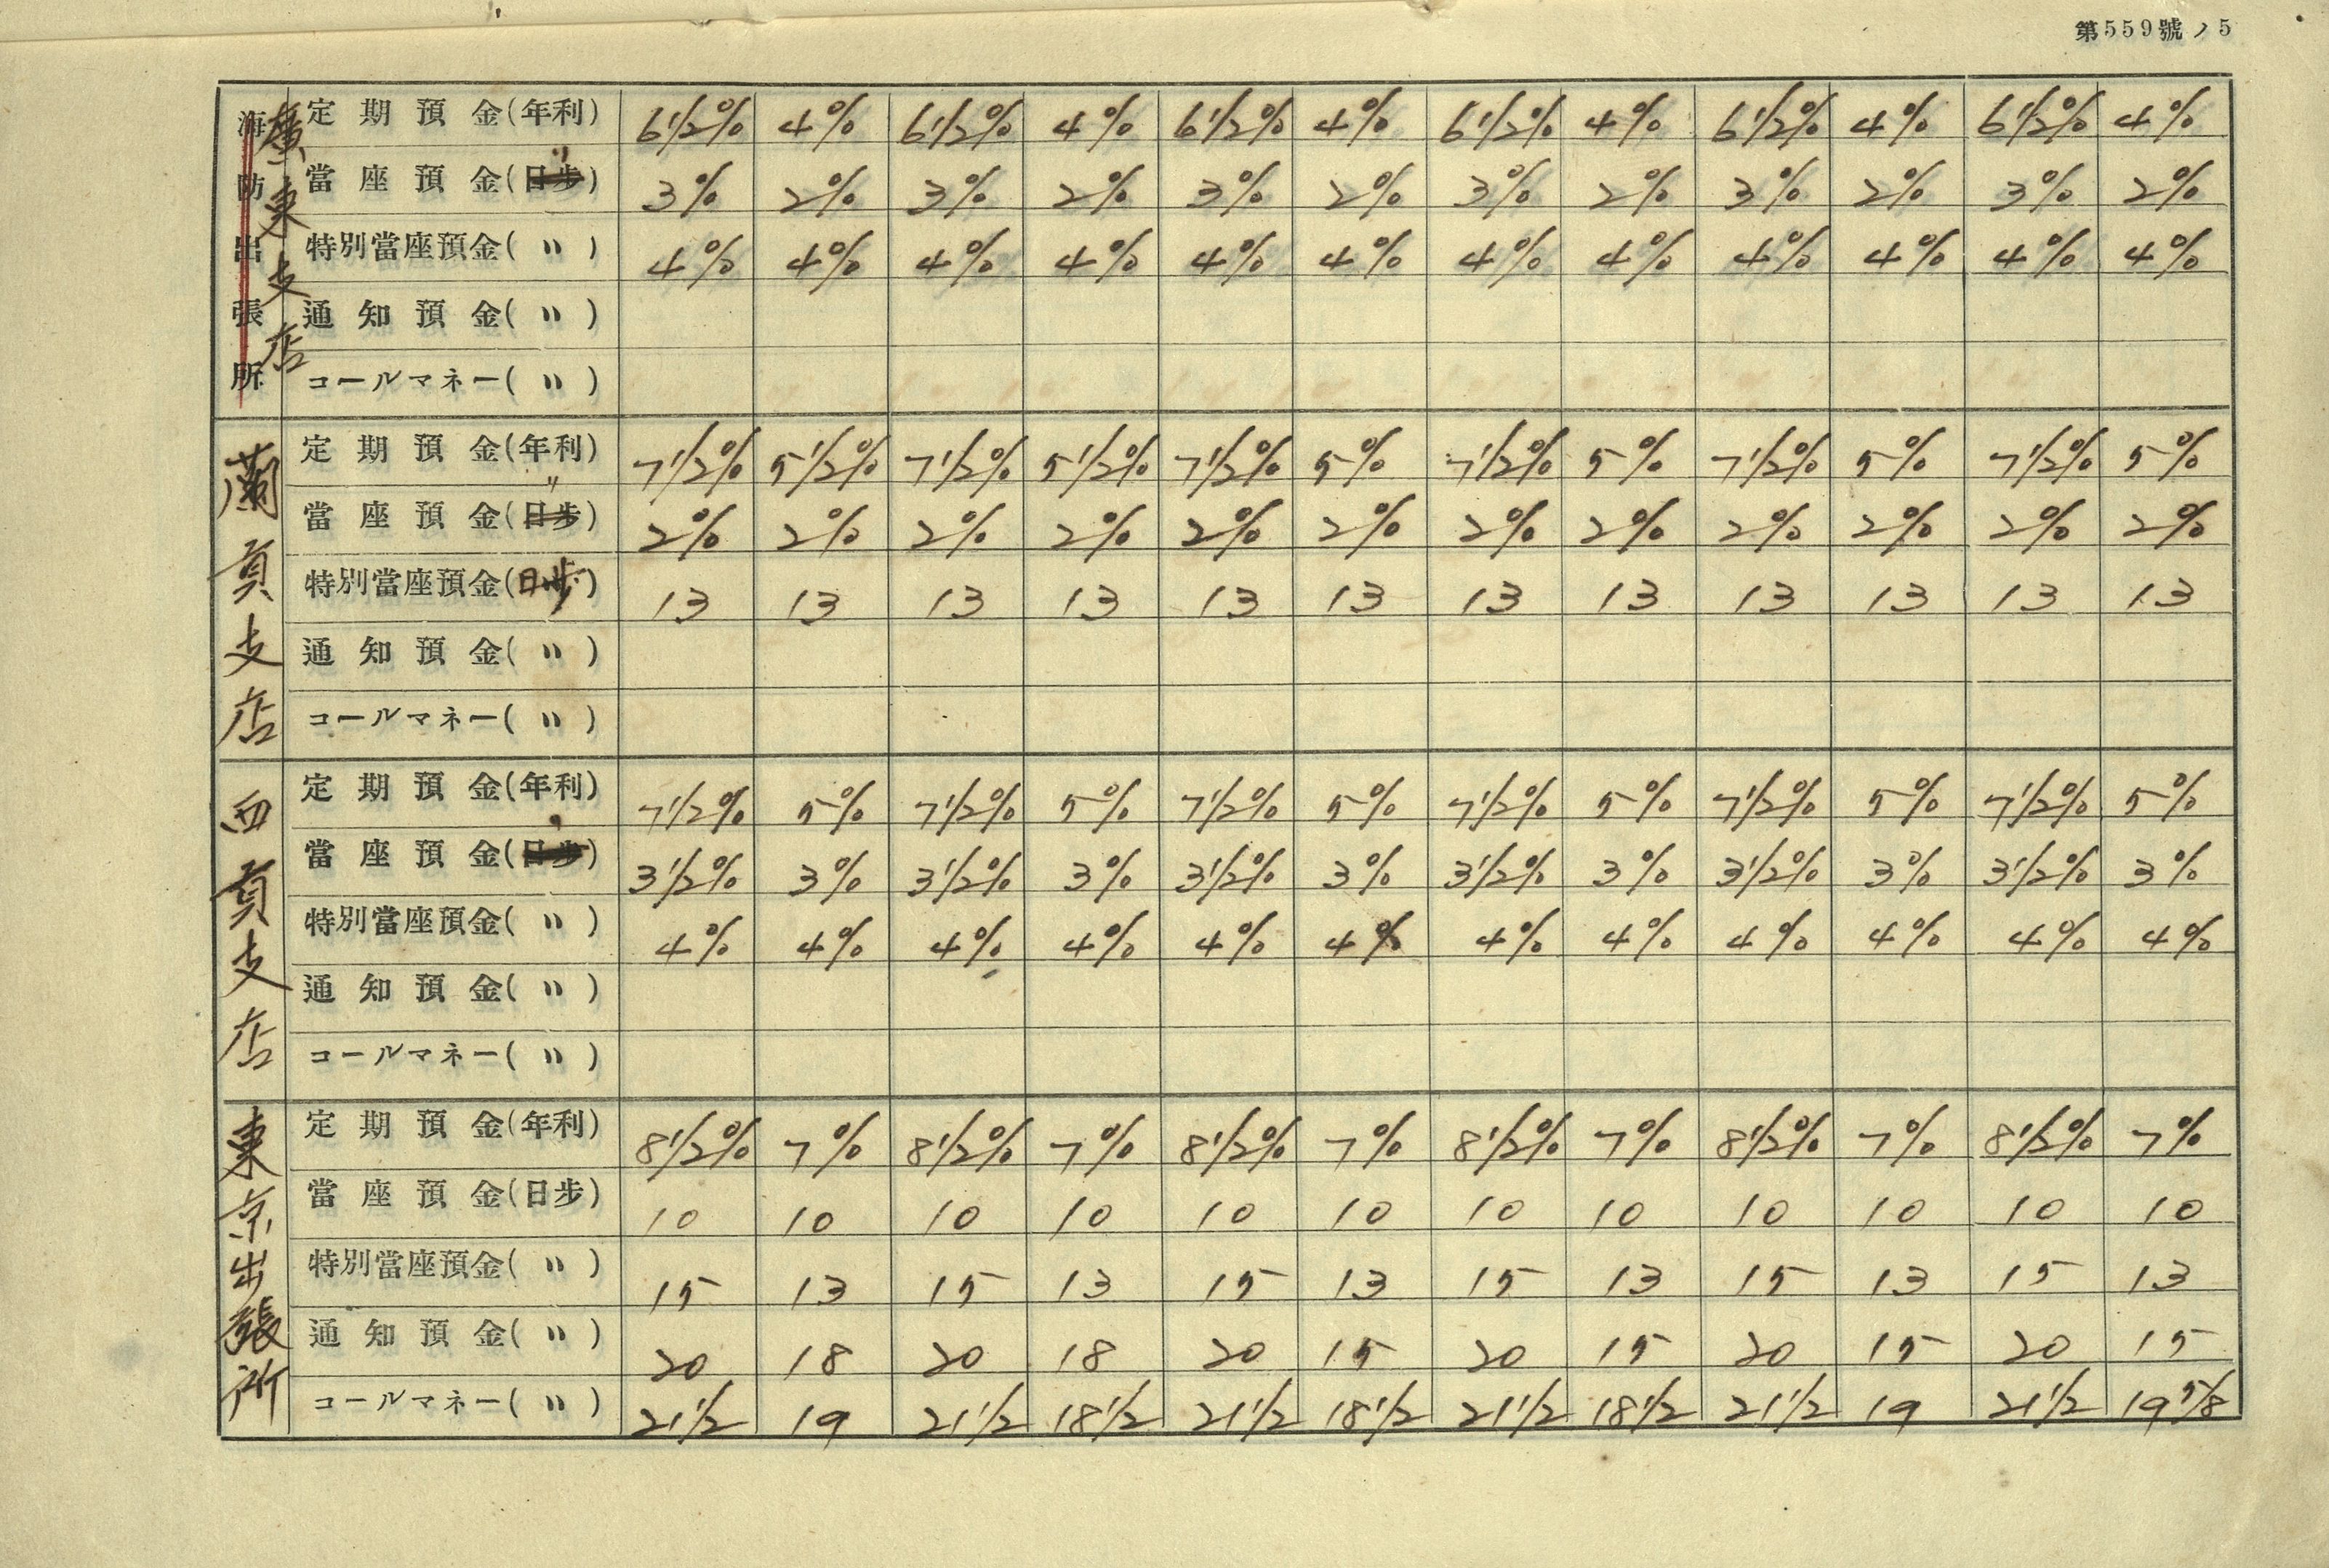 第559號ノ5
海防出張所
廣東支店
定期預金(年利) 6½% 4% 6½% 4% 6½% 4% 6½% 4% 6½% 4% 6½% 4%
當座預金(日步) 〃 3% 2% 3% 2% 3% 2% 3% 2% 3% 2% 3% 2%
特別當座預金(〃) 4% 4% 4% 4% 4% 4% 4% 4% 4% 4% 4% 4%
通知預金(〃)
コールマネー(〃)
蘭貢支店
定期預金(年利) 7½% 5½% 7½% 5½% 7½% 5% 7½% 5% 7½% 5% 7½% 5%
當座預金(日步) 〃 2% 2% 2% 2% 2% 2% 2% 2% 2% 2% 2% 2%
特別當座預金(日步) 13 13 13 13 13 13 13 13 13 13 13 13
通知預金(〃)
コールマネー(〃)
西貢支店
定期預金(年利) 7½% 5% 7½% 5% 7½% 5% 7½% 5% 7½% 5% 7½% 5%
當座預金(日步) 3½% 3% 3½% 3% 3½% 3% 3½% 3% 3½% 3% 3½% 3%
特別當座預金(〃) 4% 4% 4% 4% 4% 4% 4% 4% 4% 4% 4% 4%
通知預金(〃)
コールマネー(〃)
東京出張所
定期預金(年利) 8½% 7% 8½% 7% 8½% 7% 8½% 7% 8½% 7% 8½% 7%
當座預金(日步) 10 10 10 10 10 10 10 10 10 10 10 10
特別當座預金(〃) 15 13 15 13 15 13 15 13 15 13 15 13
通知預金(〃) 20 18 20 18 20 15 20 15 20 15 20 15
コールマネー(〃) 21½ 19 21½ 18½ 21½ 18½ 21½ 18½ 21½ 19 21½ 19⅝